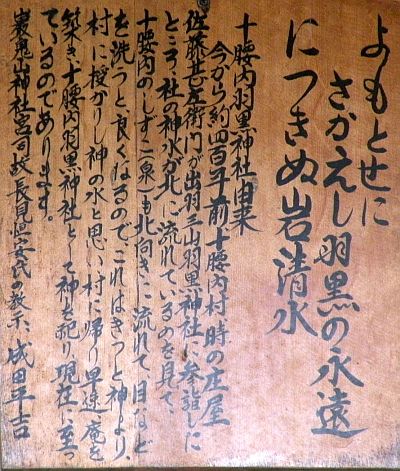 よもとせに
さかえし羽黒の永遠
につきぬ岩清水
十腰内羽黒神社由来
今から約四百年前十腰内村時の庄屋
佐藤甚左衛門が出羽三山羽黒神社に参詣しに
ところ、社の神水が北に流れているのを見て、
十腰内のしずこ(泉)も北向きに流れて、目など
を洗うと良くなるので、これはきっと神より、
村に授かりし神の水と思い、村に帰り早速庵を
築き、十腰内羽黒神社として神を祀り、現在に至っ
ているのであります。
巌鬼山神社宮司故長見恒安氏の教示、成田平吉